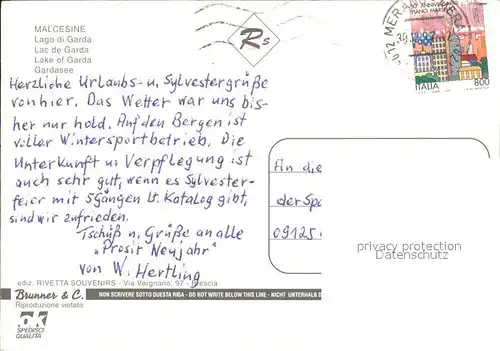 MALCESINE
Lago di Garda
Lac de Garda
Lake of Garda
Gardasee
Rs
ITALIA
800
Herzliche Urlaubs- u. Sylvestergrüße
von hier. Das Wetter war uns bis-
her nur hold. Auf den Bergen ist
voller Wintersportbetrieb. Die
Unterkunft u. Verpflegung ist
auch sehr gut, wenn es Sylvester-
feier mit 5 gängen lt. Katalog gibt,
sind wir zufrieden.
Tschüß u. Grüße an alle
"Prosit Neujahr"
von W. Hertling
An die
der Spa
09125
privacy protection
Datenschutz
ediz. RIVETTA SOUVENIRS - Via Vergnano, 97 - Brescia
Brunner & C.
NON SCRIVERE SOTTO QUESTA RIGA - DO NOT WRITE BELOW THIS LINE - NICHT UNTERHALB D
Riproduzione vietata
SPEDISCI
QUALITÀ